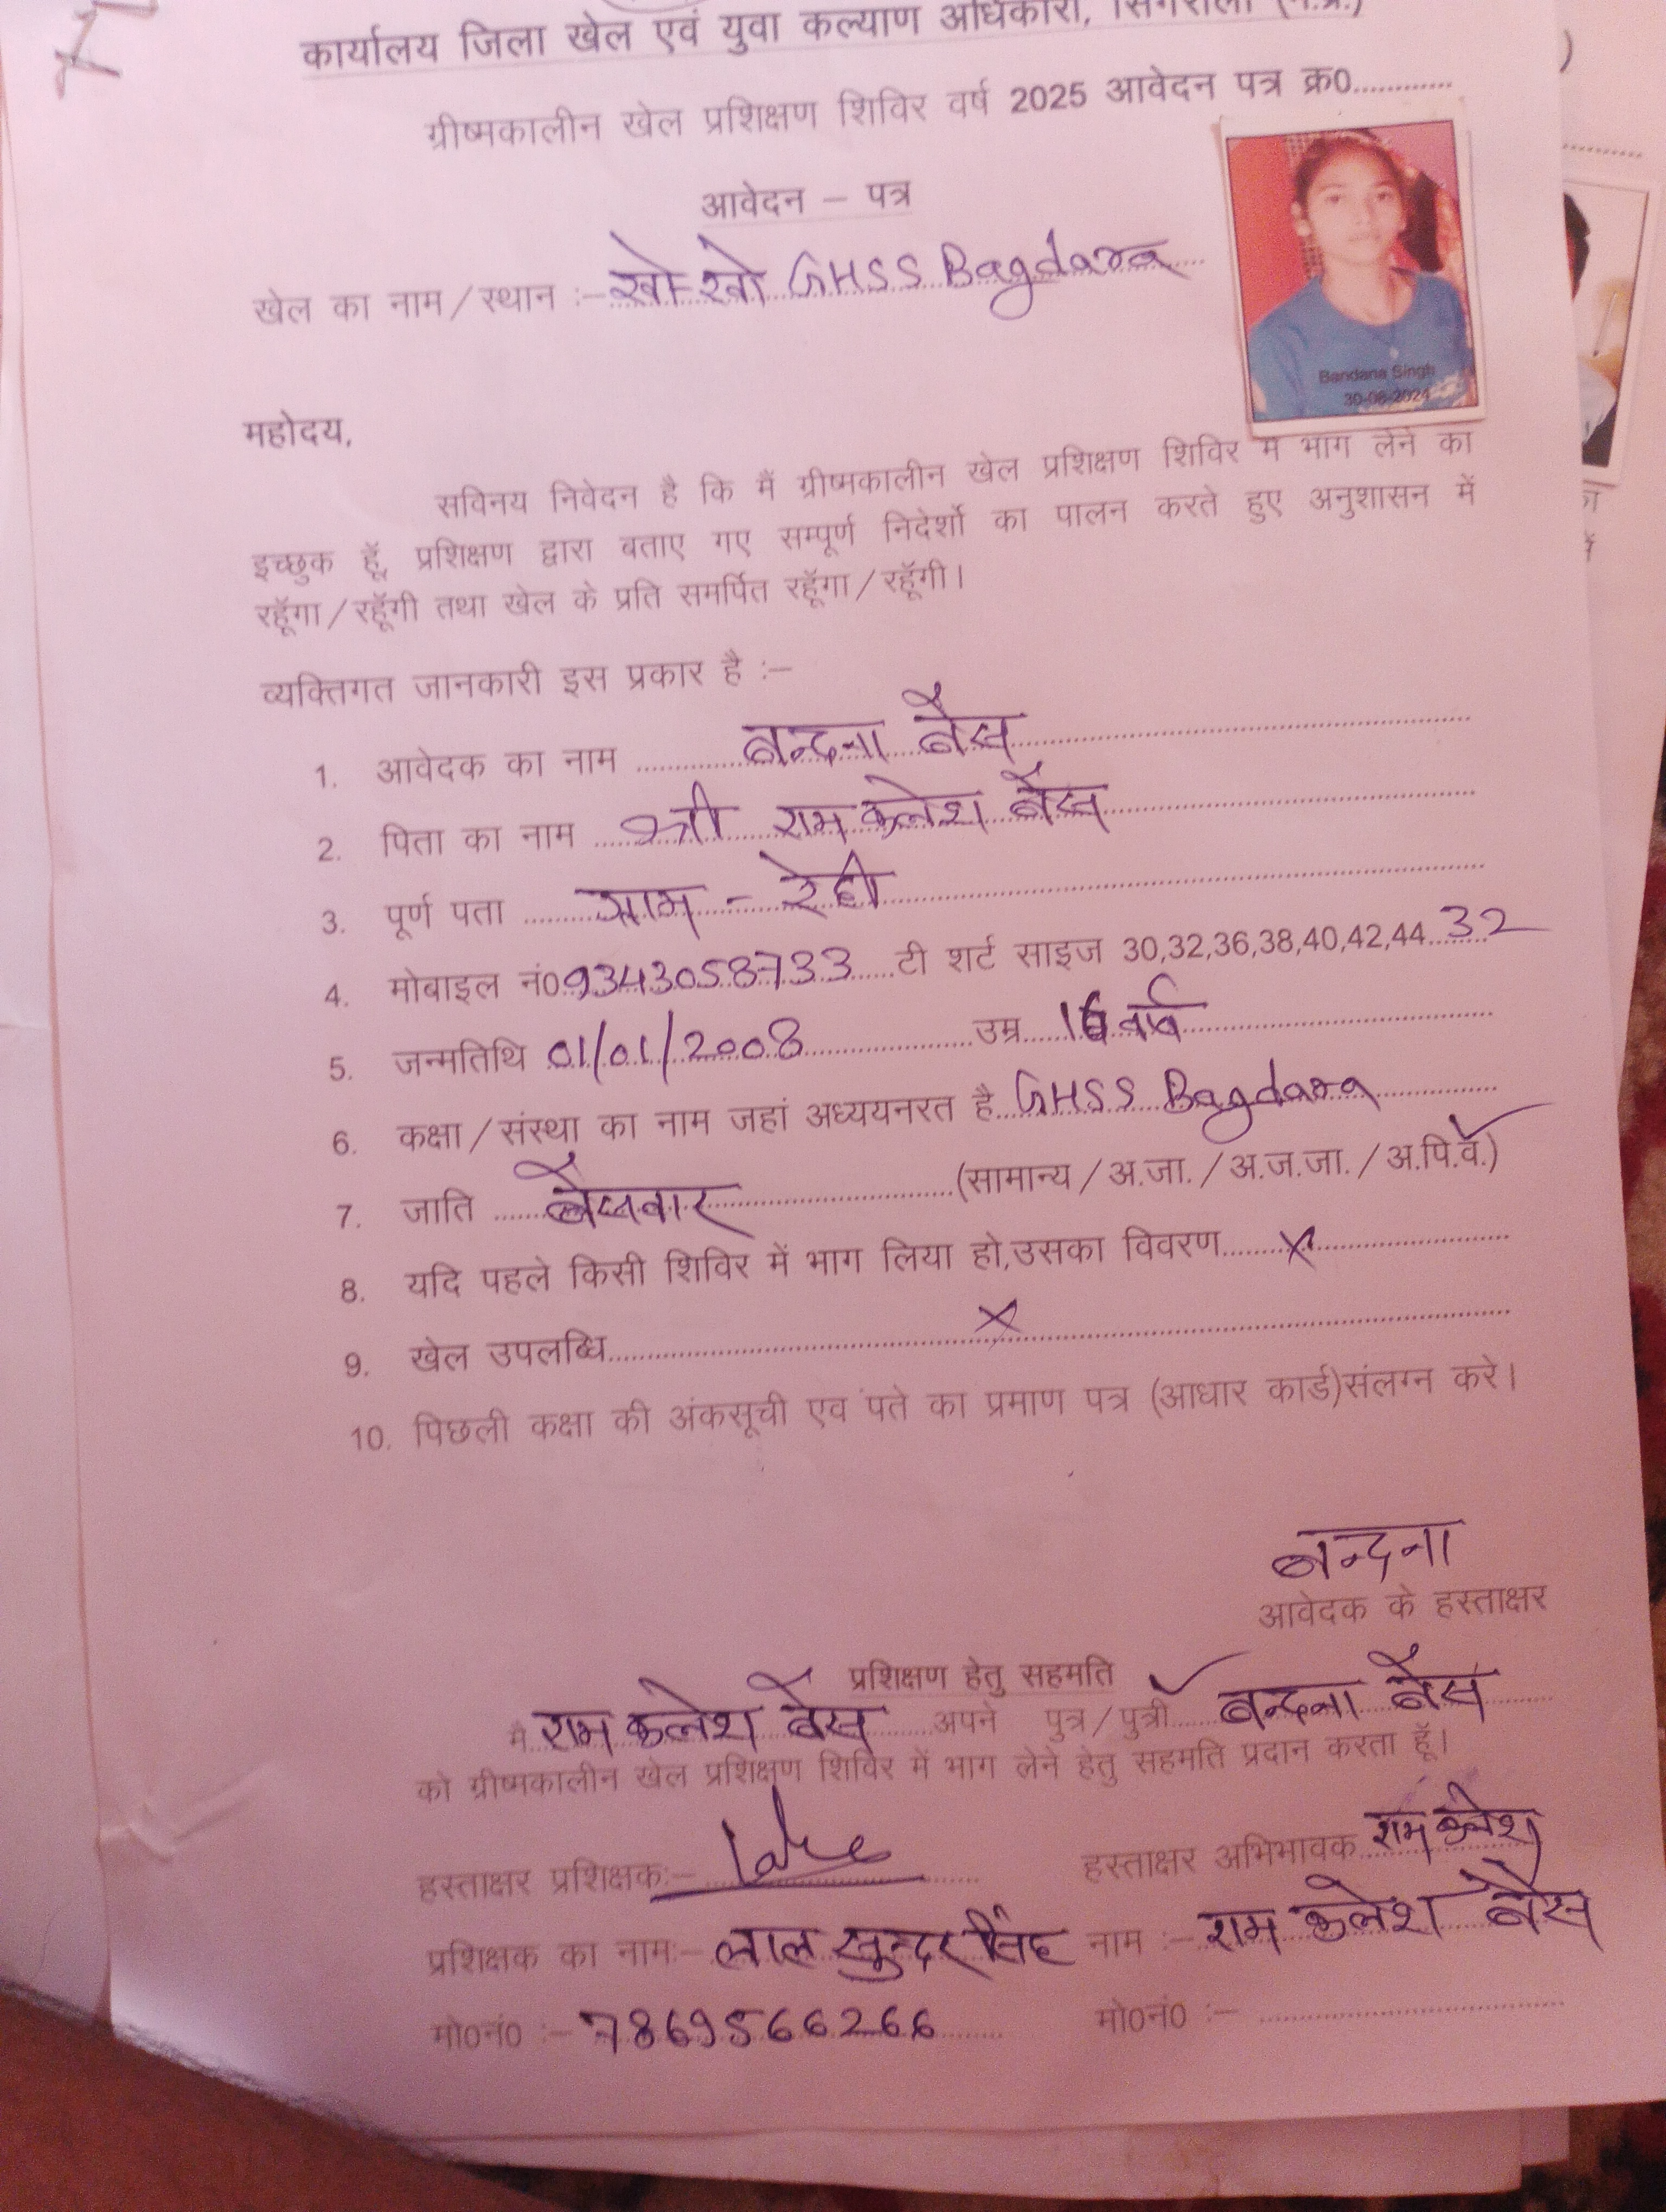 कार्यालय जिला खेल एवं युवा कल्याण अधिकारी, सिंगरौली (म.प्र.)
ग्रीष्मकालीन खेल प्रशिक्षण शिविर वर्ष 2025 आवेदन पत्र क्र0.............
आवेदन – पत्र
खेल का नाम/स्थान :– खो-खो GHSS Bagdara
Bandana Singh
30-08-2024
महोदय,
सविनय निवेदन है कि मैं ग्रीष्मकालीन खेल प्रशिक्षण शिविर में भाग लेने का
इच्छुक हूँ, प्रशिक्षण द्वारा बताए गए सम्पूर्ण निदेर्शो का पालन करते हुए अनुशासन में
रहूँगा/रहूँगी तथा खेल के प्रति समर्पित रहूँगा/रहूँगी।
व्यक्तिगत जानकारी इस प्रकार है :–
1. आवेदक का नाम बन्दना बैस
2. पिता का नाम श्री राम कलेश बैस
3. पूर्ण पता ग्राम - रेही
4. मोबाइल नं0 9343058733 टी शर्ट साइज 30,32,36,38,40,42,44 32
5. जन्मतिथि 01/01/2008 उम्र 16 वर्ष
6. कक्षा/संस्था का नाम जहां अध्ययनरत है GHSS Bagdara
7. जाति बैसवार (सामान्य/अ.जा./अ.ज.जा./अ.पि.वे.)
8. यदि पहले किसी शिविर में भाग लिया हो,उसका विवरण X
9. खेल उपलब्धि X
10. पिछली कक्षा की अंकसूची एव पते का प्रमाण पत्र (आधार कार्ड)संलग्न करे।
बन्दना
आवेदक के हस्ताक्षर
प्रशिक्षण हेतु सहमति
मै राम कलेश बैस अपने पुत्र/पुत्री बन्दना बैस
को ग्रीष्मकालीन खेल प्रशिक्षण शिविर में भाग लेने हेतु सहमति प्रदान करता हूँ।
हस्ताक्षर प्रशिक्षक:– हस्ताक्षर अभिभावक राम कलेश
प्रशिक्षक का नाम:– लाल सुन्दर सिंह नाम :– राम कलेश बैस
मो0नं0 :– 7869566266 मो0नं0 :– ....................